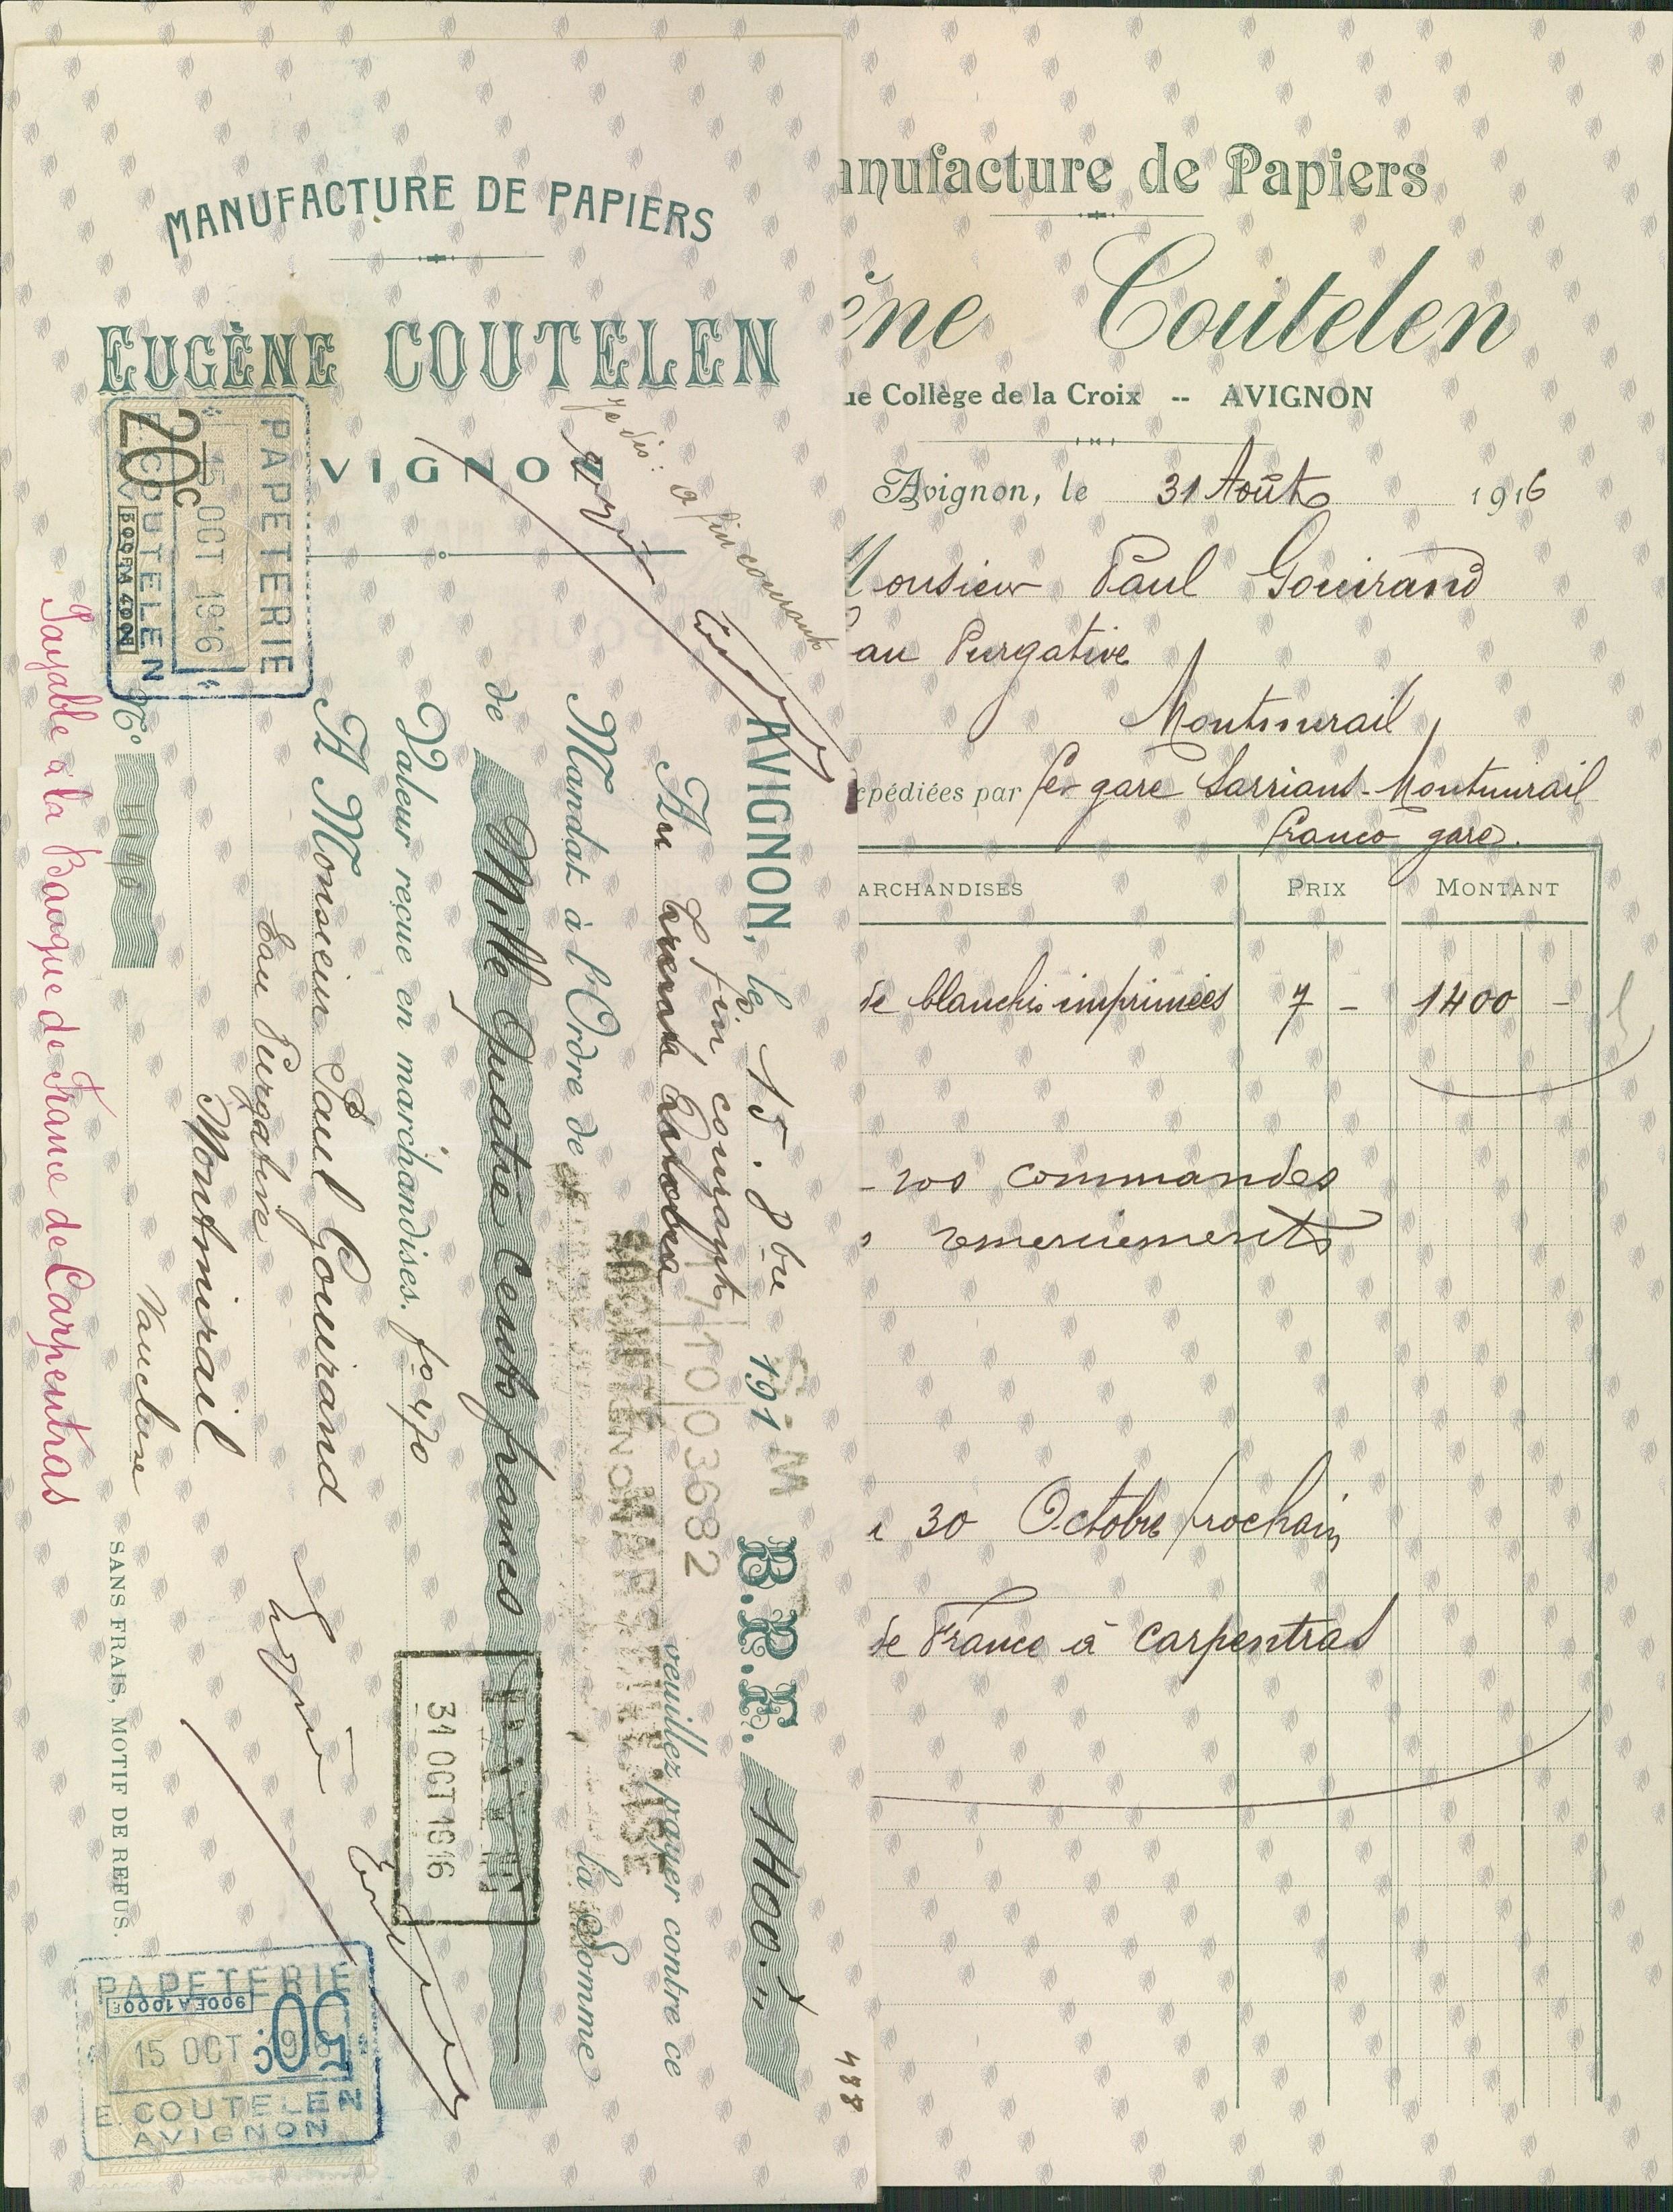 MANUFACTURE DE PAPIERS
EUGÈNE COUTELEN
VIGNON
Je dis: a fin courant
PAPETERIE
15 OCT 1916
E. COUTELEN
20c
AVIGNON, le 15. 8bre 191
B.P.F. 1400."
A fin courant
Au trente Octobre
veuillez payer contre ce
Mandat à l'Ordre de
la Somme
de Mille Quatre Cents francs
Valeur reçue en marchandises. fo 470
A Monsieur Paul Gouirand
Eau Purgative
Montmirail
Vaucluse
No
SANS FRAIS, MOTIF DE REFUS.
Payable à la Banque de France de Carpentras
7 10 03682
31 OCT 1916
PAPETERIE
15 OCT
50c
E. COUTELEN
AVIGNON
488
anufacture de Papiers
ène Coutelen
ue Collège de la Croix -- AVIGNON
Avignon, le 31 Août 1916
Monsieur Paul Gouirand
au Purgative
Montmirail
pédiées par fer gare Sarrians-Montmirail
franco gare.
ARCHANDISES PRIX MONTANT
de blanchis imprimées 7 - 1400 -
- vos commandes
remerciements
30 Octobre prochain
de France à Carpentras